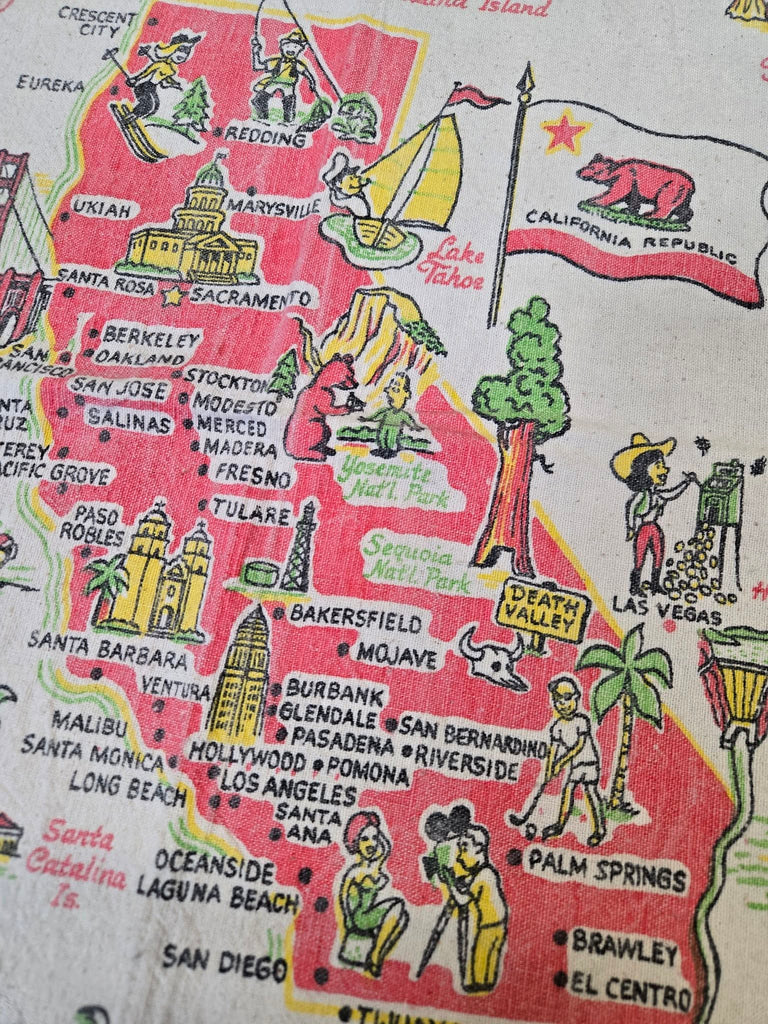 Island
CRESCENT
CITY
EUREKA
REDDING
UKIAH
MARYSVILLE
CALIFORNIA REPUBLIC
Lake
Tahoe
SANTA ROSA
SACRAMENTO
BERKELEY
OAKLAND
SAN
SAN JOSE
STOCKTON
MODESTO
SALINAS
MERCED
MADERA
FRESNO
GROVE
Yosemite
Nat'l. Park
TULARE
PASO
ROBLES
Sequoia
Nat'l. Park
DEATH
VALLEY
LAS VEGAS
BAKERSFIELD
MOJAVE
SANTA BARBARA
VENTURA
BURBANK
GLENDALE
PASADENA
SAN BERNARDINO
RIVERSIDE
MALIBU
SANTA MONICA
HOLLYWOOD
POMONA
LONG BEACH
LOS ANGELES
SANTA
ANA
Santa
Catalina
Is.
OCEANSIDE
LAGUNA BEACH
PALM SPRINGS
SAN DIEGO
BRAWLEY
EL CENTRO